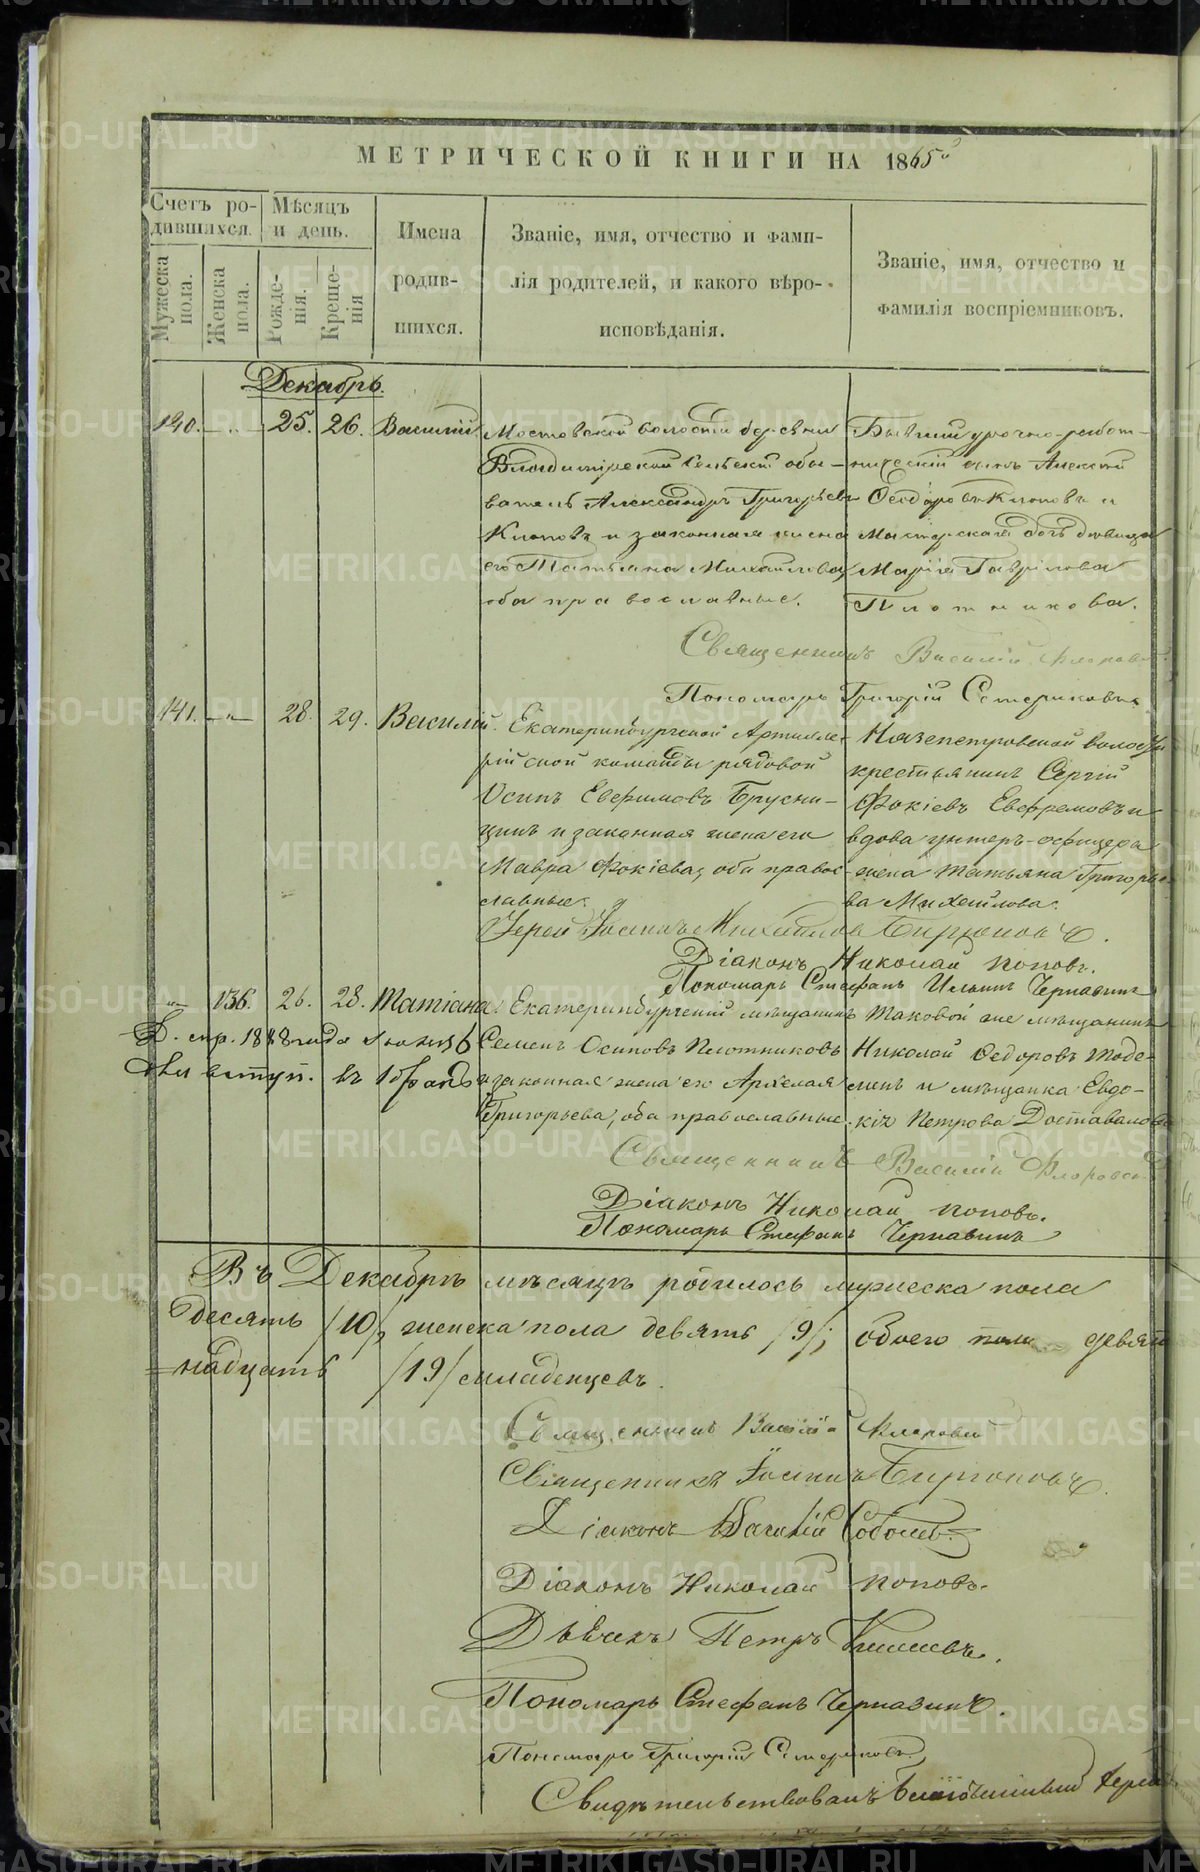 МЕТРИЧЕСКОЙ КНИГИ НА 1865й
Счетъ ро-
дившихся.
Мѣсяцъ
и день.
Мужеска
пола.
Женска
пола.
Рожде-
нія.
Креще-
нія
Имена
родив-
шихся.
Званіе, имя, отчество и фами-
лія родителей, и какого вѣро-
исповѣданія.
Званіе, имя, отчество и
фамилія воспріемниковъ.
Декабрь.
140. 25. 26. Василій
Мостовской волости деревни
сельскій обы-
ватель Александръ Григорьевъ
Клоповъ и законная жена
его Татьяна Михайлова,
оба православные.
Бывшій урочно-работ-
Алексѣй
Ѳеодоровъ Клоповъ и
дочь дѣвица
Марія Гаврілова
Плотникова.
Священникъ Василій Флоровскій
Пономарь Григорій Сетериковъ
141. 28. 29. Василій.
Екатеринбургской Артилле-
рійской команды рядовой
Осипъ Евфимовъ Брусни-
цинъ и законная жена его
Мавра Фокіева, оба правос-
лавные.
Нязепетровской волости
крестьянинъ Сергій
Фокіевъ Евфремовъ и
вдова унтеръ-офицера
жена Татьяна Григорье-
ва Михайлова.
Іерей Іоаннъ Михайловъ Бирюковъ.
Діаконъ Николай Поповъ.
Пономарь Стефанъ Ильинъ Чернавинъ
136. 26. 28. Татіана.
Екатеринбургскій мѣщанинъ
Семенъ Осиповъ Плотниковъ
и законная жена его
Григорьева, оба православные.
Таковой же мѣщанинъ
Николай Ѳедоровъ
и мѣщанка Евдо-
кія Петрова Доставалова
вступ. въ 1й бракъ
Священникъ Василій Флоровскій
Діаконъ Николай Поповъ.
Пономарь Стефанъ Чернавинъ
Въ Декабрѣ мѣсяцѣ родилось мужеска пола
десять /10/, женска пола девять /9/; обоего пола девят-
надцать /19/ младенцевъ.
Священникъ Василій Флоровскій
Священникъ Іоаннъ Бирюковъ.
Діаконъ Соболевъ.
Діаконъ Николай Поповъ.
Дьячекъ Петръ
Пономарь Стефанъ Чернавинъ.
Пономарь Григорій Сетериковъ
Свидѣтельствовалъ Благочинный Іерей
METRIKI.GASO-URAL.RU